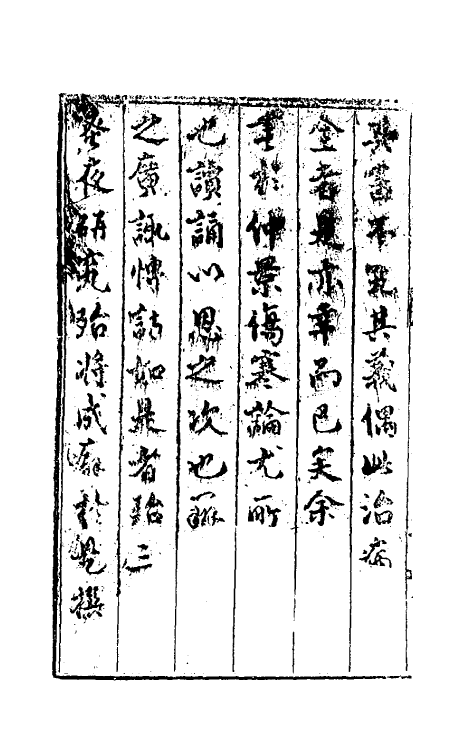 其書不究其義偶此治病
全者是亦幸而已矣余
至於仲景傷寒論尤所
也讀誦以思之次也
之廣諏博訪如是者殆三
晝夜研究殆將成癖於是撰